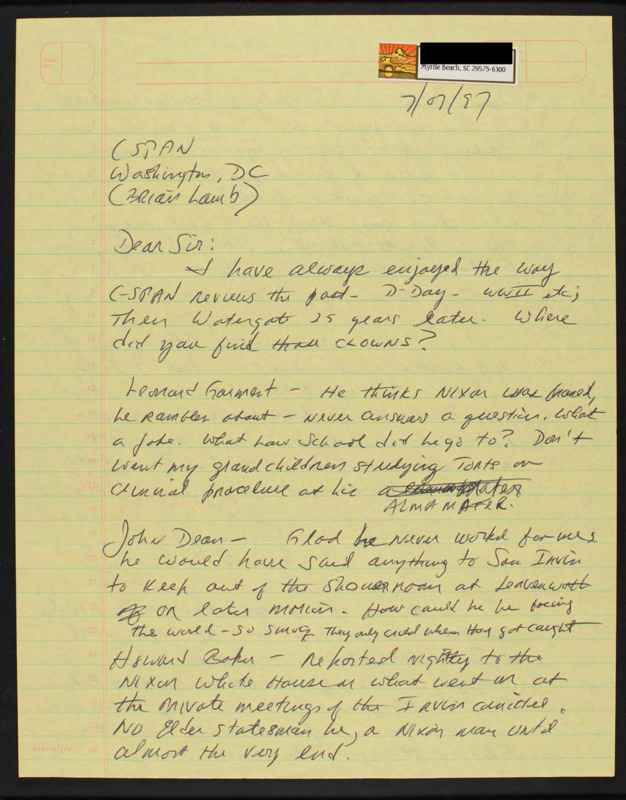 Myrtle Beach, SC 29575-6300
7/07/97
CSPAN
Washington, DC
(Brian Lamb)
Dear Sir:
I have always enjoyed the way
C-SPAN reviews the past - D-Day - WWII etc;
Then Watergate 25 years later. Where
did you find those CLOWNS?
Leonard Garment - He thinks Nixon was framed,
he rambles about - never answers a question. What
a joke. What Law School did he go to? Don't
want my grandchildren studying Torts or
criminal procedure at his
ALMA MATER.
John Dean - Glad he never worked for me;
he would have said anything to Sam Irvin
to keep out of the shower room at Leavenworth
or later Marion. How could he be facing
the world - so smug. They only cried when they got caught
Howard Baker - Reported nightly to the
Nixon White House on what went on at
the private meetings of the Irvin comittee.
No Elder statesman he, a Nixon man until
almost the very end.